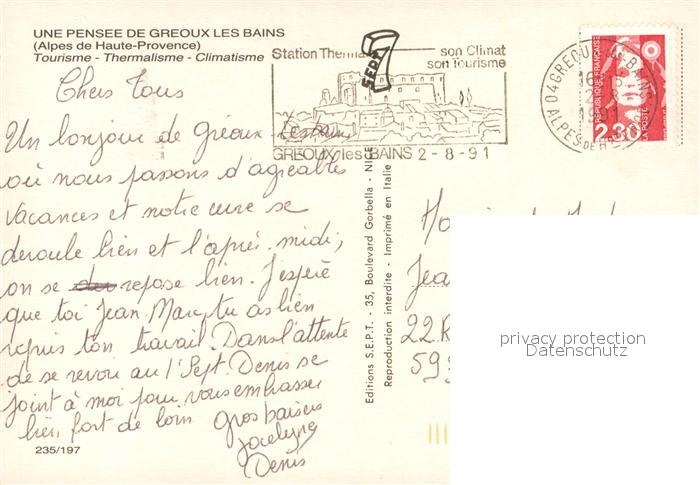 UNE PENSEE DE GREOUX LES BAINS
(Alpes de Haute-Provence)
Tourisme - Thermalisme - Climatisme
Chers Tous
Un bonjour de Gréoux les Bains
où nous passons d'agréables
vacances et notre cure se
deroule bien et l'après-midi,
on se repose bien. J'espère
que toi Jean Marc, tu as bien
repris ton travail. Dans l'attente
de se revoir au 1 Sept. Denis se
joint à moi pour vous embrasser
bien fort de loin Gros baisers
Jocelyne
Denis
235/197
Station Therma
son Climat
son Tourisme
SEPT
GREOUX les BAINS 2-8-91
04 GREOUX-LES-BAINS
ALPES DE H
REPUBLIQUE FRANÇAISE
2,30
LA POSTE
Editions S.E.P.T. - 35, Boulevard Gorbella - NICE
Reproduction interdite - Imprimé en Italie
Jea
22 R
59
privacy protection
Datenschutz